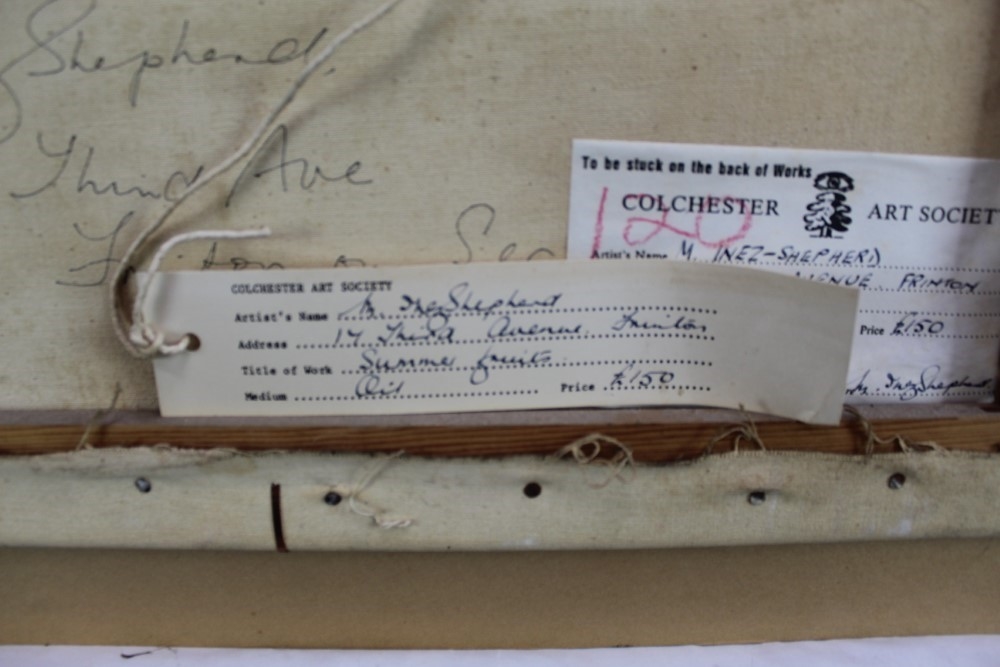 Shepherd
Third Ave
Frinton on Sea
To be stuck on the back of Works
COLCHESTER ART SOCIETY
120
Artist's Name M. INEZ-SHEPHERD
AVENUE FRINTON
Price £150
M. Inez Shepherd
COLCHESTER ART SOCIETY
Artist's Name M. Inez Shepherd
Address 17 Third Avenue Frinton
Title of Work Summer fruits
Medium Oil Price £150